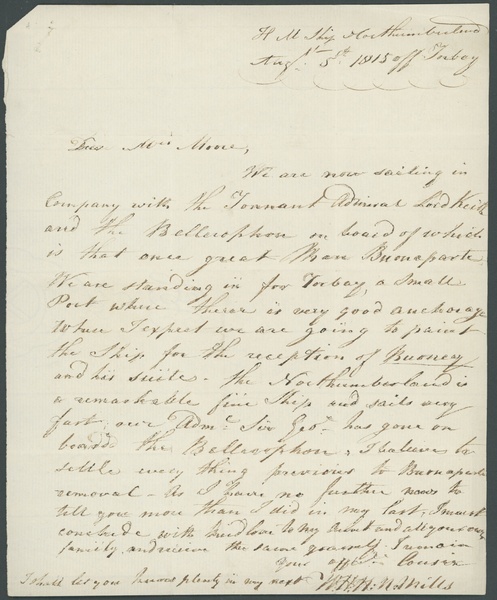 H M Ship Northumberland
Augst. 5th. 1815 off Torbay
Dear Mrs Moore,
We are now sailing in
Company with the Tonnant Admiral Lord Keith
and the Bellerophon on board of which
is that once great Man Buonaparte.
We are standing in for Torbay, a small
Port where there is very good anchorage
where I expect we are going to paint
the Ship for the reception of Buoney
and his suite - the Northumberland is
a remarkable fine Ship and sails very
fast; our Adml. Sir Geo. has gone on
board the Bellerophon, I believe to
settle every thing previous to Buonaparte
removal - As I have no further news to
tell you more than I did in my last, I must
conclude with kind love to my Aunt and all your own
family and receive the same yourself. I remain
Your affect. Cousin
I shall let you know plenty in my next
Mills